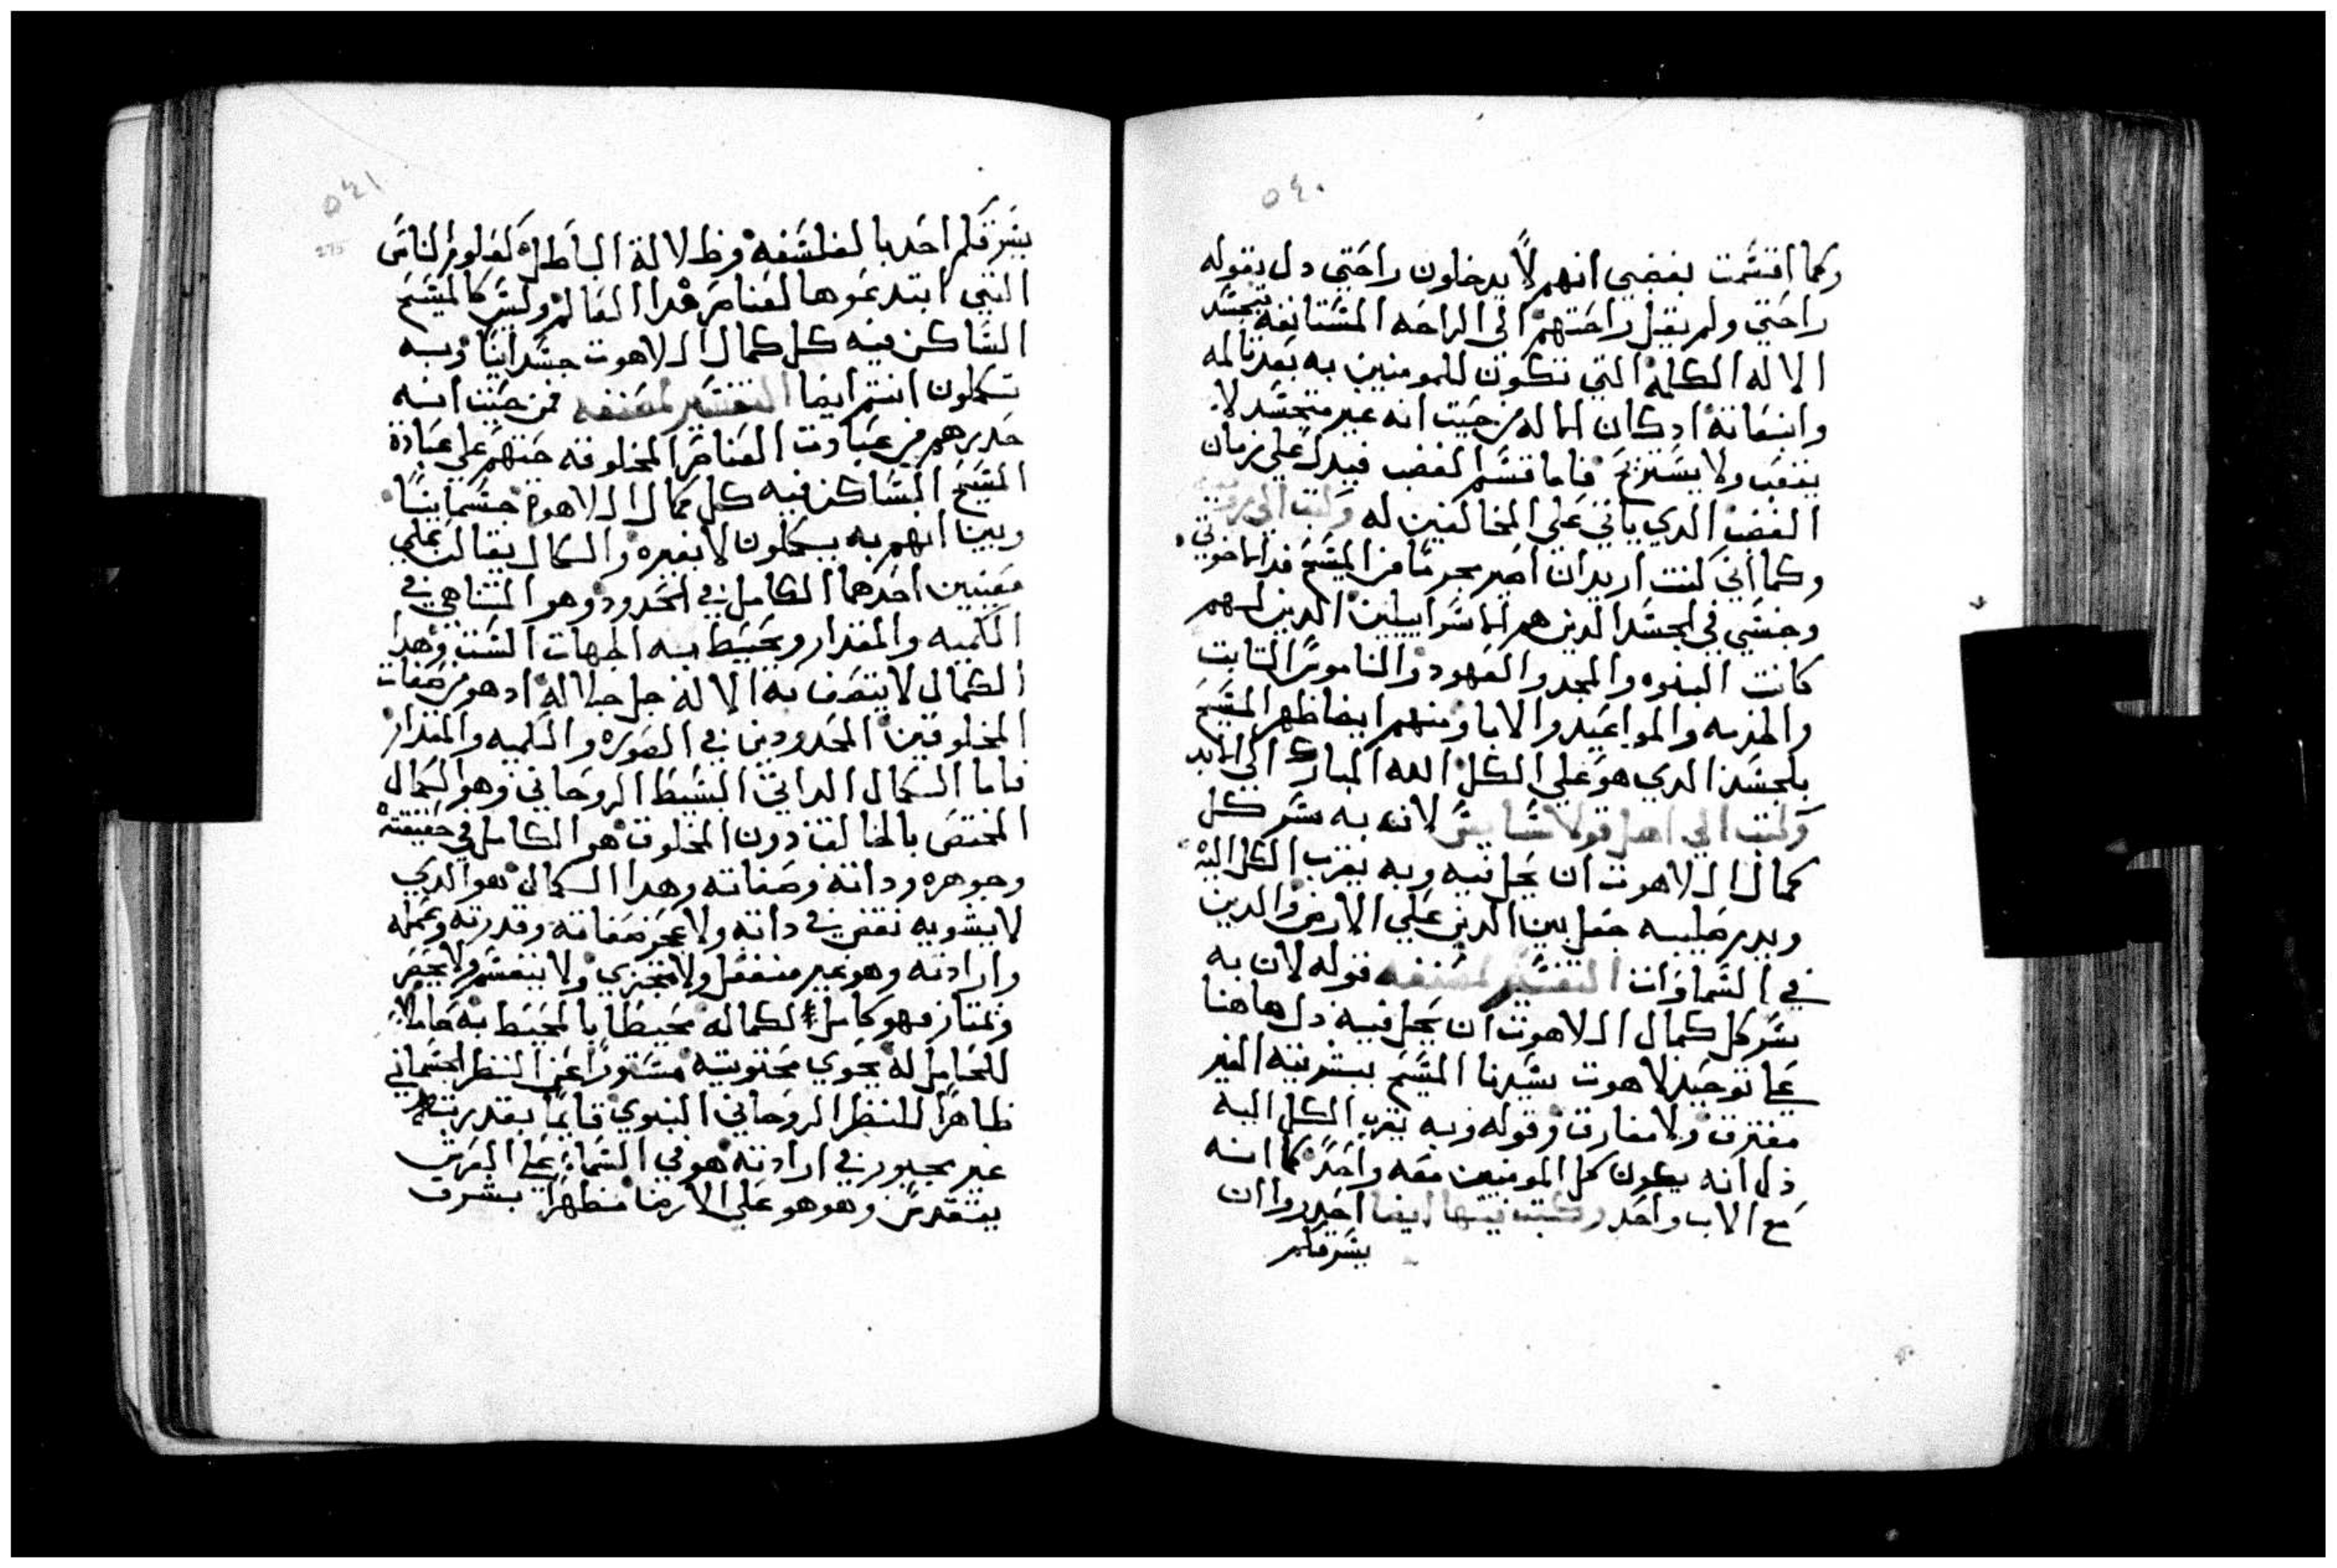 ٥٤٠
وكما اقسمت بغضبي انهم لا يدخلون راحتي دل بقوله
راحتي ولم يقل راحتهم الي الراحه المستانفه بتجسد
الاله الكلمة التي تكون للمومنين به بعد تالمه
وانبعاثه اد كان الاله من حيث انه غير متجسد لا
يتعب ولا يستريح فاما قسم الغضب فيدل علي زمان
الغضب الدي ياتي علي المخالفين له وكتب الي
وكما اني كنت اريد ان اصير محروما من المسيح فدا اخوتي
وجنسي في الجسد الدين هم الاسراييليين الدين لهم
كانت البنوه والمجد والعهود والناموس الثابت
والخدمه والمواعيد والابا ومنهم ايضا ظهر المسيح
بالجسد الدي هو علي الكل الله المبارك الي الابد
وكتب الي اهل قولاسايس لانه به سر كل
كمال اللاهوت ان يحل فيه وبه يقرب الكل اليه
وبدم صليبه جعل بين الدين علي الارض والدين
في السماوات التفسير لمصنفه قوله لان به
سر كل كمال اللاهوت ان يحل فيه دل هاهنا
علي توحيد لاهوت سيدنا المسيح ببشريته الغير
مفترق ولا مفارق وقوله وبه يقرب الكل اليه
دل انه يكون كل المومنين معه واحد كما انه
مع الاب واحد وكتب فيها ايضا احدروا ان
يسرقكم
٥٤١
275
يسرقكم احد بالفلسفه وظلالة الباطل كعلوم الناس
التي ابتدعوها لعناصر هدا العالم وليس كالمسيح
الساكن فيه كل كمال اللاهوت جسدانيا وبه
تكملون انتم ايضا التفسير لمصنفه فمن حيث انه
حدرهم من عبادت العناصر المخلوقه حثهم علي عبادة
المسيح الساكن فيه كل كمال اللاهوة جسمانيا
وبين انهم به يكملون لا بغيره والكمال يقال علي
معنيين احدهما الكامل في الحدود وهو المتناهي في
الكميه والمقدار ويحيط به الجهات الست وهدا
الكمال لا يتصف به الاله جل جلاله اد هو من صفات
المخلوقين المحدودين في الصوره والكميه والمقدار
فاما الكمال الداتي البسيط الروحاني وهو الكمال
المختص بالخالق دون المخلوق هو الكامل في حقيقته
وجوهره وداته وصفاته وهدا الكمال هو الدي
لا يشوبه نقص في داته ولا عجز صفاته وقدرته وعمله
وارادته وهو غير منفعل ولا متجزي ولا ينقسم ولا يحصر
ويمتاز فهو كامل لكماله محيطا بالمحيط به حاملا
للحامل له يحوي محتويته مستورا عن النظر الجسماني
ظاهرا للنظر الروحاني النبوي قايما بقدرته
غير مجبور في ارادته هو في السماء علي العرش
يتقدس وهو هو علي الارض متظهرا بشرف